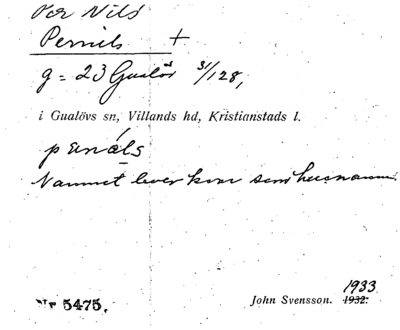 Per Nils
Pernils +
g = 23 Gualöv 3/128,
i Gualövs sn, Villands hd, Kristianstads l.
pænå̱ls
Namnet lever kvar som husnamn.
1933
Nr 5475. John Svensson. 1932.